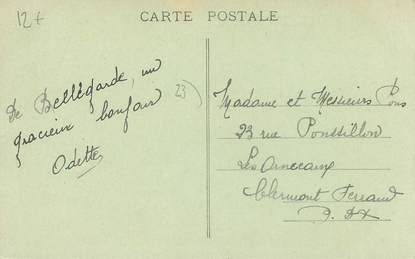 12+
CARTE POSTALE
De Bellegarde, un
gracieux bonjour
Odette
23
Madame et Messieurs Pons
23 rue
Les
Clermont Ferrand